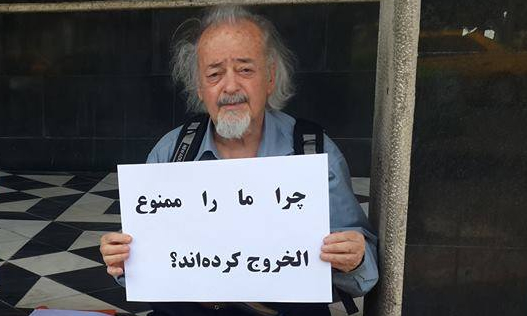 چرا ما را ممنوع
الخروج کرده‌اند؟